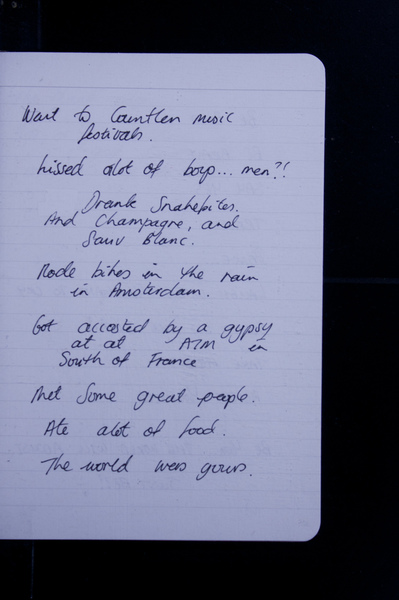 Went to Countless music
festivals.
kissed alot of boys... men?!
Drank Snakebites.
And Champagne, and
Sauv Blanc.
Rode bikes in the rain
in Amsterdam.
Got accosted by a gypsy
at at ATM in
South of France
Met Some great people.
Ate alot of food.
The world was yours.